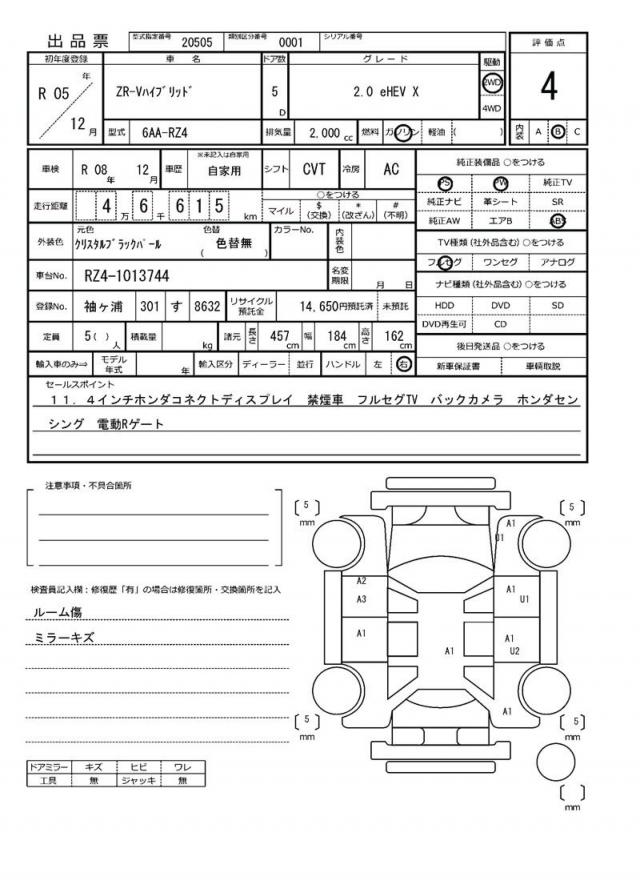 出品票 型式指定番号 20505 類別区分番号 0001 シリアル番号
初年度登録 車名 ドア数 グレード 駆動 評価点
R 05 年 12 月 ZR-Vハイブリッド 5 D 2.0 eHEV X 2WD 4WD 4
型式 6AA-RZ4 排気量 2,000 cc 燃料 ガソリン 軽油 ( ) 内装 A B C
車検 R 08 年 12 月 車歴 ※未記入は自家用 自家用 シフト CVT 冷房 AC 純正装備品 ○をつける
PS PW 純正TV
走行距離 4 万 6 千 6 1 5 km ○をつける マイル $ (交換) * (改ざん) # (不明) 純正ナビ 革シート SR
純正AW エアB ABS
外装色 元色 クリスタルブラックパール 色替 ( 色替無 ) カラーNo. 内装色 TV種類 (社外品含む) ○をつける
フルセグ ワンセグ アナログ
車台No. RZ4-1013744 名変期限 月 日 ナビ種類 (社外品含む) ○をつける
登録No. 袖ヶ浦 301 す 8632 リサイクル預託金 14,650円預託済 未預託 HDD DVD SD
DVD再生可 CD
定員 5 ( ) 人 積載量 kg 諸元 長さ 457 cm 幅 184 cm 高さ 162 cm 後日発送品 ○をつける
輸入車のみ⇒ モデル年式 年 輸入区分 ディーラー 並行 ハンドル 左 右 新車保証書 車輌取説
セールスポイント
11.4インチホンダコネクトディスプレイ 禁煙車 フルセグTV バックカメラ ホンダセン
シング 電動Rゲート
注意事項・不具合箇所
検査員記入欄:修復歴「有」の場合は修復箇所・交換箇所を記入
ルーム傷
ミラーキズ
ドアミラー キズ ヒビ ワレ
工具 無 ジャッキ 無
[ 5 ] mm [ 5 ] mm
A1
U1
A2
A3 A1 U1
A1 A1 A1 U2
A1
[ 5 ] mm [ 5 ] mm
[ ] mm